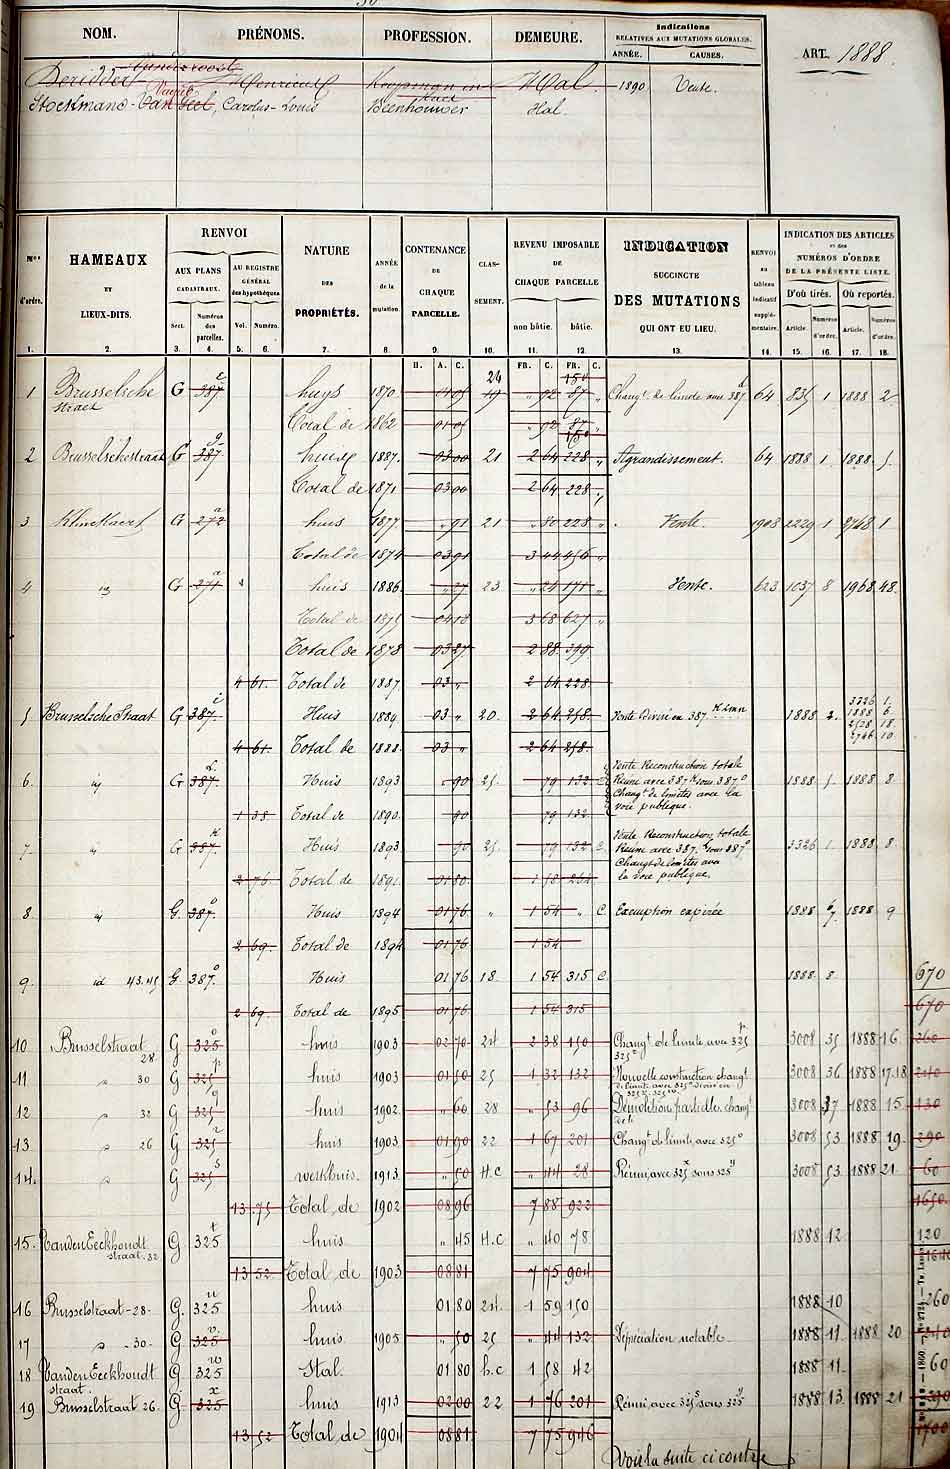 NOM. PRÉNOMS. PROFESSION. DEMEURE. Indications
RELATIVES AUX MUTATIONS GLOBALES.
ANNÉE. CAUSES.
ART. 1888
Deridder Henricus Koopman in Hal 1890 Vente.
Stoekmans-Van Geel, Carolus-Louis Beenhouwer Hal.
Nos d'ordre. HAMEAUX ET LIEUX-DITS. RENVOI
AUX PLANS CADASTRAUX. AU REGISTRE GÉNÉRAL des hypothèques
Sect. Numéros des parcelles. Vol. Numéro.
NATURE DES PROPRIÉTÉS. ANNÉE de la mutation. CONTENANCE DE CHAQUE PARCELLE. CLAS-SEMENT.
REVENU IMPOSABLE DE CHAQUE PARCELLE
non bâtie. bâtie.
INDICATION SUCCINCTE DES MUTATIONS QUI ONT EU LIEU.
RENVOI au tableau indicatif supplé-mentaire.
INDICATION DES ARTICLES et des NUMÉROS D'ORDRE DE LA PRÉSENTE LISTE.
D'où tirés. Où reportés.
Article. Numéros d'ordre. Article. Numéros d'ordre.
1. 2. 3. 4. 5. 6. 7. 8. 9. 10. 11. 12. 13. 14. 15. 16. 17. 18.
H. A. C. FR. C. FR. C.
1 Brusselsche straet G 387 huys 1870 01 05 24 " 92 87 " Changt. de limite avec 387 64 835 1 1888 2
Total de 1862 01 05 " 92 87
2 Brusselschestraat G 387 huise 1887. 03 00 21 2 64 228 " Agrandissement. 64 1888 1 1888. 5
Total de 1871 03 00 2 64 228
3 Klinkaert G 272 huis 1877. " 91 21 " 80 228 " Vente. 1903 2229 1 2768 1
Total de 1874 03 91 3 44 456 "
4 id G 271 huis 1886. " 27 23 " 24 171 " Vente. 623 1037 8 1968. 48.
Total de 1875 04 18 3 68 627 "
Total de 1878 03 27 2 88 399
4 61. Total de 1887. 03 " 2 64 228
5 Brusselsche Straat G 387. Huis 1889 03 " 20. 2 64 258. Vente Divisé en 387. 1888 2. 3326 1.
1888 6.
2528 18.
2746 10.
4 61. Total de 1888. 03 " 2 64 258.
6. id G 387. Huis 1893 " 90 25. " 79 132 Vente Reconstruction totale
Réuni avec 387 sous 387
Changt. de limites avec la
voie publique. 1888 5. 1888 8
1 38 Total de 1890. 90 79 132
7. id G 387. Huis 1893 90 25. 79 132 C. Vente Reconstruction totale
Réuni avec 387. sous 387
Changt de limites avec
la voie publique. 3326 1. 1888. 8
2 76. Total de 1891. 01 80 1 58 264
8. id G. 387. Huis 1894 01 76 " 1 54 " C. Exemption expirée 1888 6/7 1888 9
2 69. Total de 1894 01 76 1 54
9. id 43.45 G. 387. Huis 01 76 18. 1 54 315 C. 1888. 8. 670
2 69. Total de 1895 01 76 1 54 315 670
10. Brusselstraat 28 G 325 huis 1903 02 70 24 2 38 150 Changt. de limite, avec 325 3008 35 1888 16. 260
11 " 30 G 325 huis 1903 01 50 25 1 32 132 Nouvelle construction changt 3008 36 1888 17.18
12 " 32 G 325 huis 1902 " 60 28 " 53 96 Démolition partielle. changt de li 3008 37 1888 15 130
13 " 26 G 325 huis 1903 01 90 22 1 67 201 Changt de limite, avec 325 3008 53 1888 19. 290
14. " G 325 werkhuis. 1913 " 50 H.C " 44 28 Réuni, avec 325 sous 325 3008 53 1888 21. 60
13 75 Total de 1902 08 96 7 88 922 1650.
15. Vanden Eeckhoudt straat. 32 G. 325 huis " 45 H.C " 40 78 1888 12. 120
13 52 Total de 1903 08 81 7 75 904 1640
16 Brusselstraat-28- G. 325 huis 01 80 24 1 59 150 1888 10 260
17 " -30- G. 325 huis 1905 " 50 25 " 44 132 Dépréciation notable. 1888 11. 1888 20 240
18 Vanden Eeckhoudt straat. G. 325 Stal. 01 80 h.c 1 58 42 1888 11. 60
19 Brusselstraat 26. G. 325 huis 1913 02 00 22 1 76 201 Réuni, avec 325 sous 325 1888 13 1888 21 290
13 52 Total de 1904 08 81 7 75 946 1700
Voir la suite ci contre